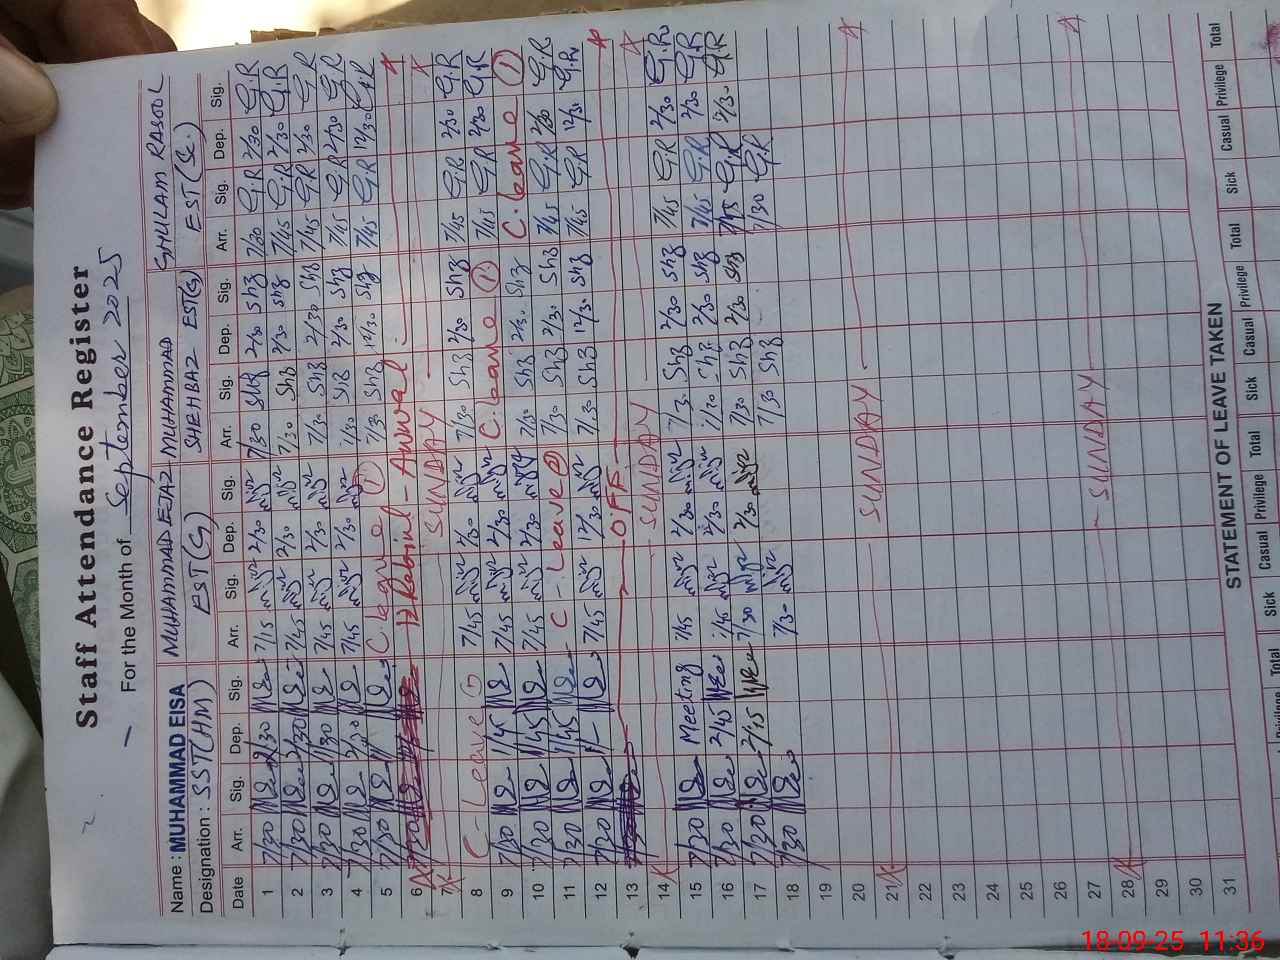 Staff Attendance Register
For the Month of September 2025
Name : MUHAMMAD EISA MUHAMMAD EJAZ MUHAMMAD SHEHBAZ GHULAM RASOOL
Designation : SST(HM) EST(G) EST(G) EST(Sc.)
Date Arr. Sig. Dep. Sig. Arr. Sig. Dep. Sig. Arr. Sig. Dep. Sig. Arr. Sig. Dep. Sig.
1 7/30 2/30 7/15 2/30 7/30 Shz 2/30 Shz 7/30 G.R 2/30 G.R
2 7/30 2/30 7/45 2/30 7/30 Shz 2/30 Shz 7/45 G.R 2/30 G.R
3 7/30 1/30 7/45 2/30 7/30 Shz 2/30 Shz 7/45 G.R 2/30 G.R
4 7/30 2/30 7/45 2/30 7/30 Shz 2/30 Shz 7/45 G.R 2/30 G.R
5 7/30 C leave 1 7/30 Shz 12/30 Shz 7/45 G.R 12/30 G.R
6 12 Rabiul - Awwal
7 SUNDAY
8 C - Leave 1 7/45 2/30 7/30 Shz 2/30 Shz 7/45 G.R 2/30 G.R
9 7/30 1/45 7/45 2/30 C. leave 1 7/45 G.R 2/30 G.R
10 7/30 1/45 7/45 2/30 7/30 Shz 2/30 Shz C. leave 1
11 7/30 1/45 C - Leave 2 7/30 Shz 2/30 Shz 7/45 G.R 2/30 G.R
12 7/30 7/45 12/30 7/30 Shz 12/30 Shz 7/45 G.R 12/30 G.R
13 OFF
14 SUNDAY
15 7/30 Meeting 7/45 2/30 7/30 Shz 2/30 Shz 7/45 G.R 2/30 G.R
16 7/30 2/45 7/45 2/30 7/30 Shz 2/30 Shz 7/45 G.R 2/30 G.R
17 7/30 2/15 7/30 2/30 7/30 Shz 2/30 Shz 7/45 G.R 2/30 G.R
18 7/30 7/30 7/30 Shz 7/30 G.R
19
20
21 SUNDAY
22
23
24
25
26
27
28 SUNDAY
29
30
31
STATEMENT OF LEAVE TAKEN
Privilege Total Sick Casual Privilege Total Sick Casual Privilege Total Sick Casual Privilege Total
18-09-25 11:36